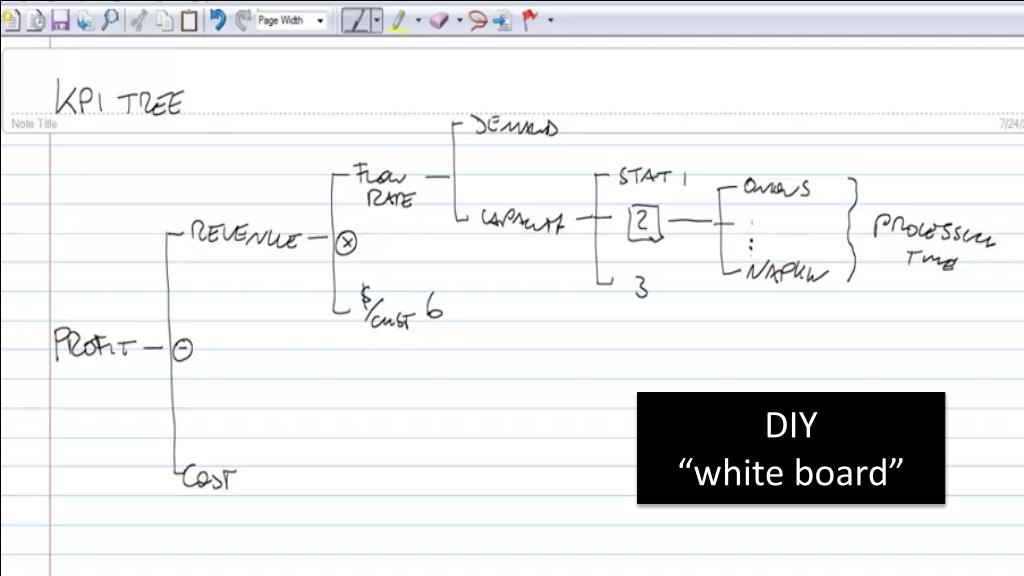 Page Width
KPI TREE
Note Title
7/24/
DEMAND
FLOW
RATE
STAT 1
ONIONS
CAPACITY
2
PROCESSING
TIME
REVENUE
×
:
NAPKIN
3
$/CUST 6
PROFIT
-
COST
DIY
“white board”